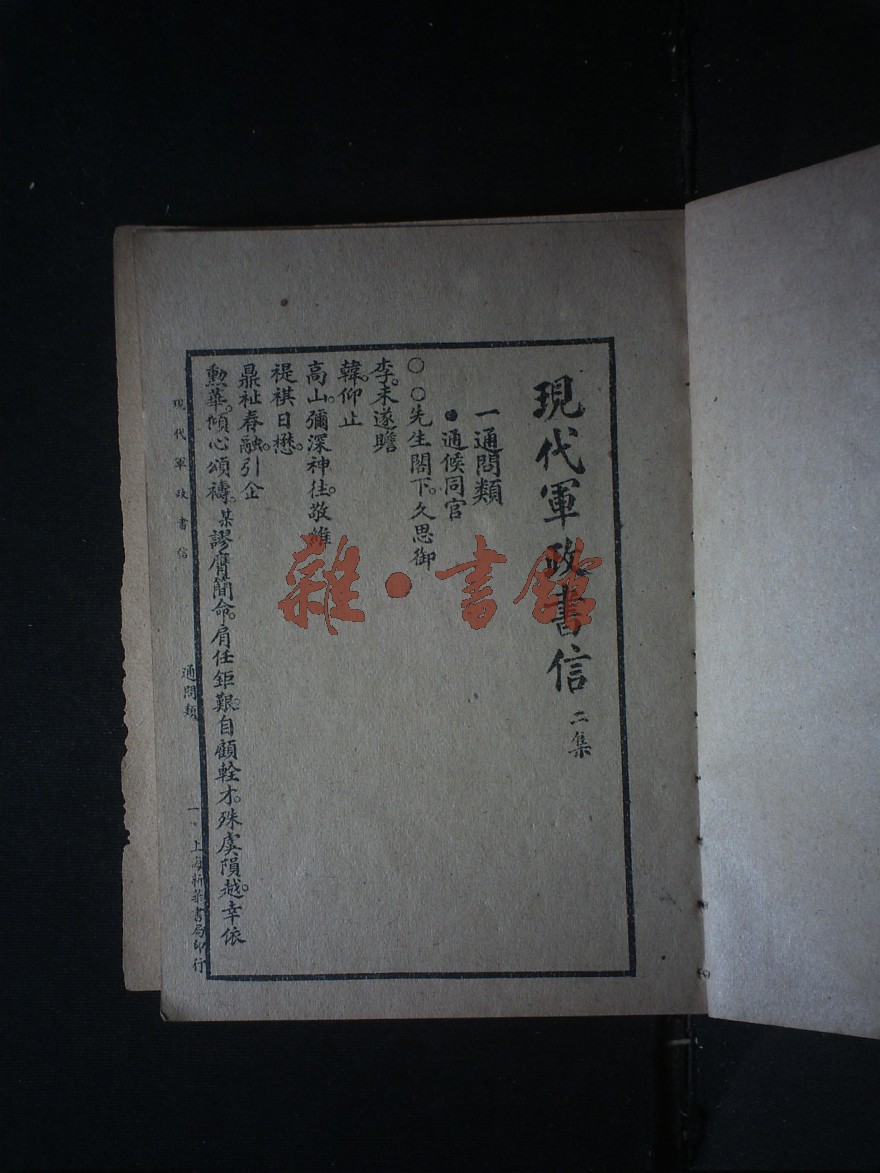 現代軍政書信 二集
一通問類
●通候同官
○○先生閣下。久思御
李。未遂瞻
韓。仰止
高山。彌深神往。敬維
禔祺日懋。
鼎祉春融。引企
勳華。傾心頌禱。某謬膺簡命。肩任鉅艱。自顧輇才。殊虞隕越。幸依
現代軍政書信
通問類
一
上海新華書局印行
雜·書館